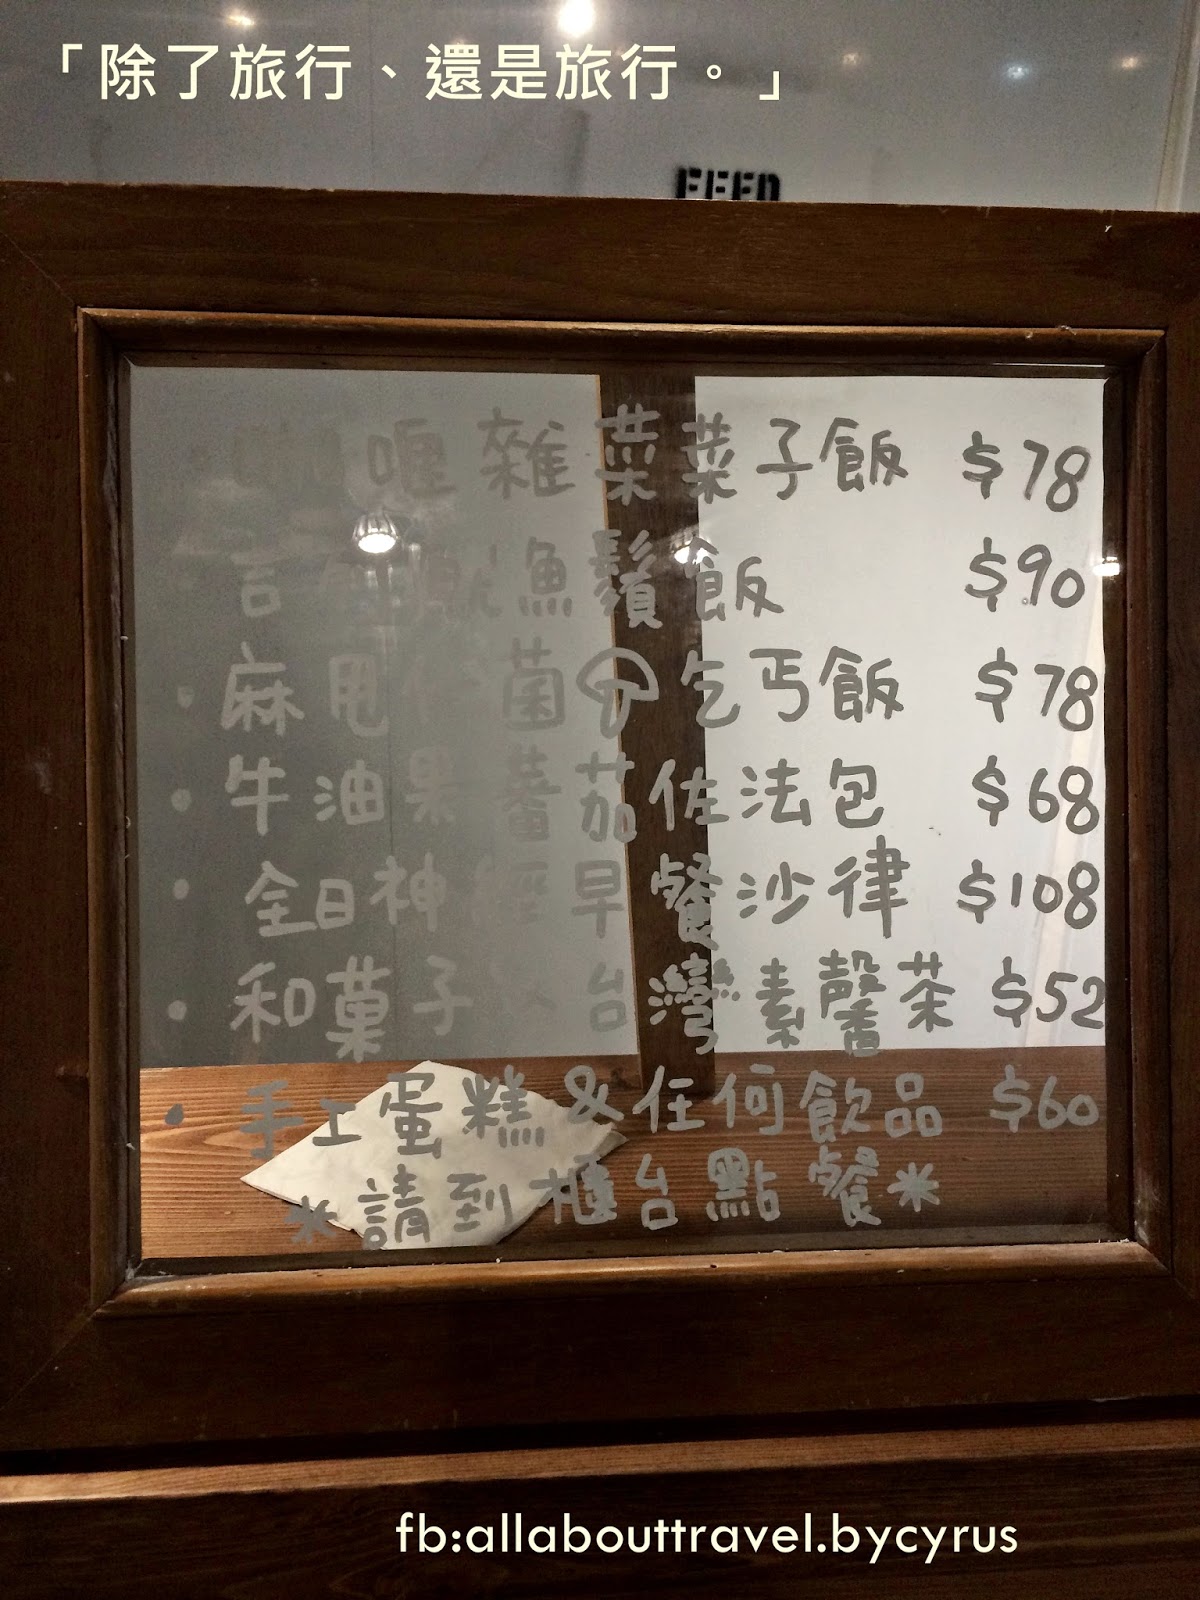 「除了旅行、還是旅行。」
FEED
咖喱雜菜菜子飯 $78
吉 魚鬚飯 $90
麻甩 菌乞丐飯 $78
牛油果蕃茄佐法包 $68
全日神經早餐沙律 $108
和菓子 台灣素馨茶 $52
手工蛋糕&任何飲品 $60
*請到櫃台點餐*
fb:allabouttravel.bycyrus